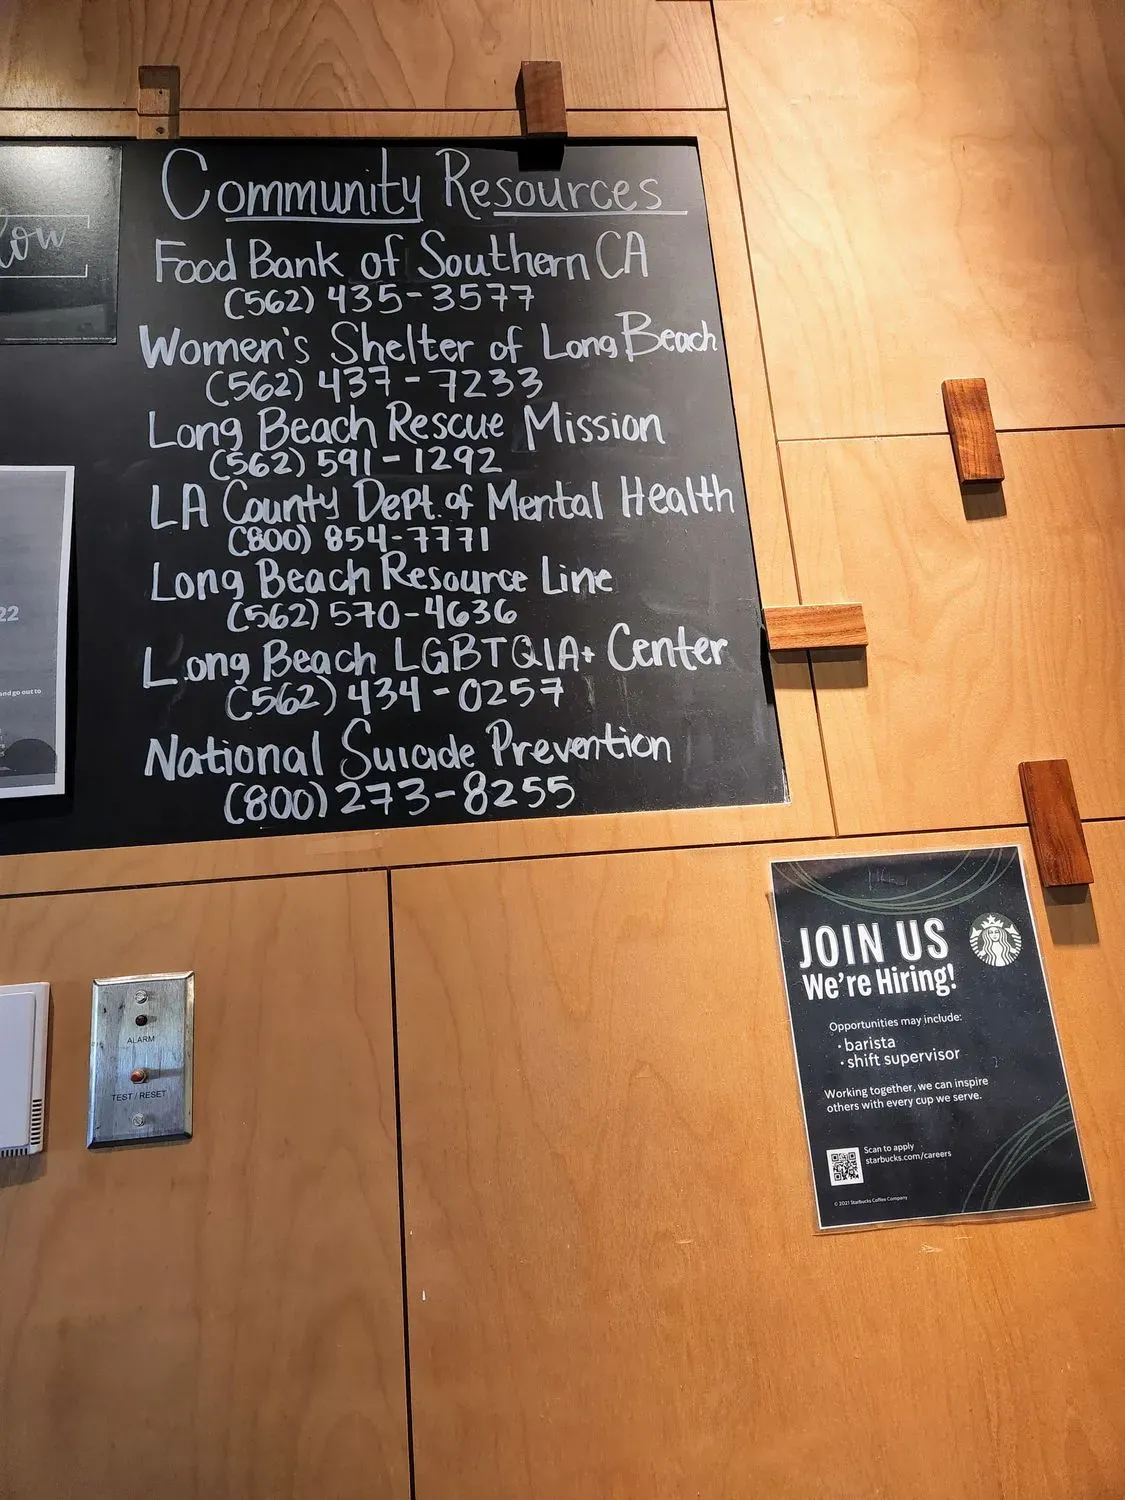 Community Resources
Food Bank of Southern CA
(562) 435-3577
Women's Shelter of Long Beach
(562) 437-7233
Long Beach Rescue Mission
(562) 591-1292
LA County Dept. of Mental Health
(800) 854-7771
Long Beach Resource Line
(562) 570-4636
Long Beach LGBTQIA+ Center
(562) 434-0257
National Suicide Prevention
(800) 273-8255
low
22
and go out to
ALARM
TEST / RESET
JOIN US
We're Hiring!
Opportunities may include:
· barista
· shift supervisor
Working together, we can inspire
others with every cup we serve.
Scan to apply
starbucks.com/careers
© 2021 Starbucks Coffee Company